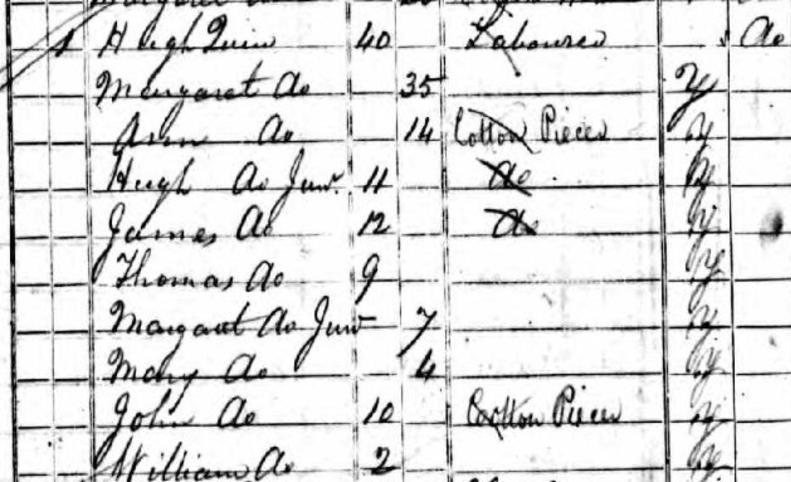 1 Hugh Quin 40 Labourer do
Margaret do 35 Y
Ann do 14 Cotton Piecer Y
Hugh do Junr. 11 do Y
James do 12 do Y
Thomas do 9 Y
Margaret do Junr 7 Y
Mary do 4 Y
John do 10 Cotton Piecer Y
William do 2 Y